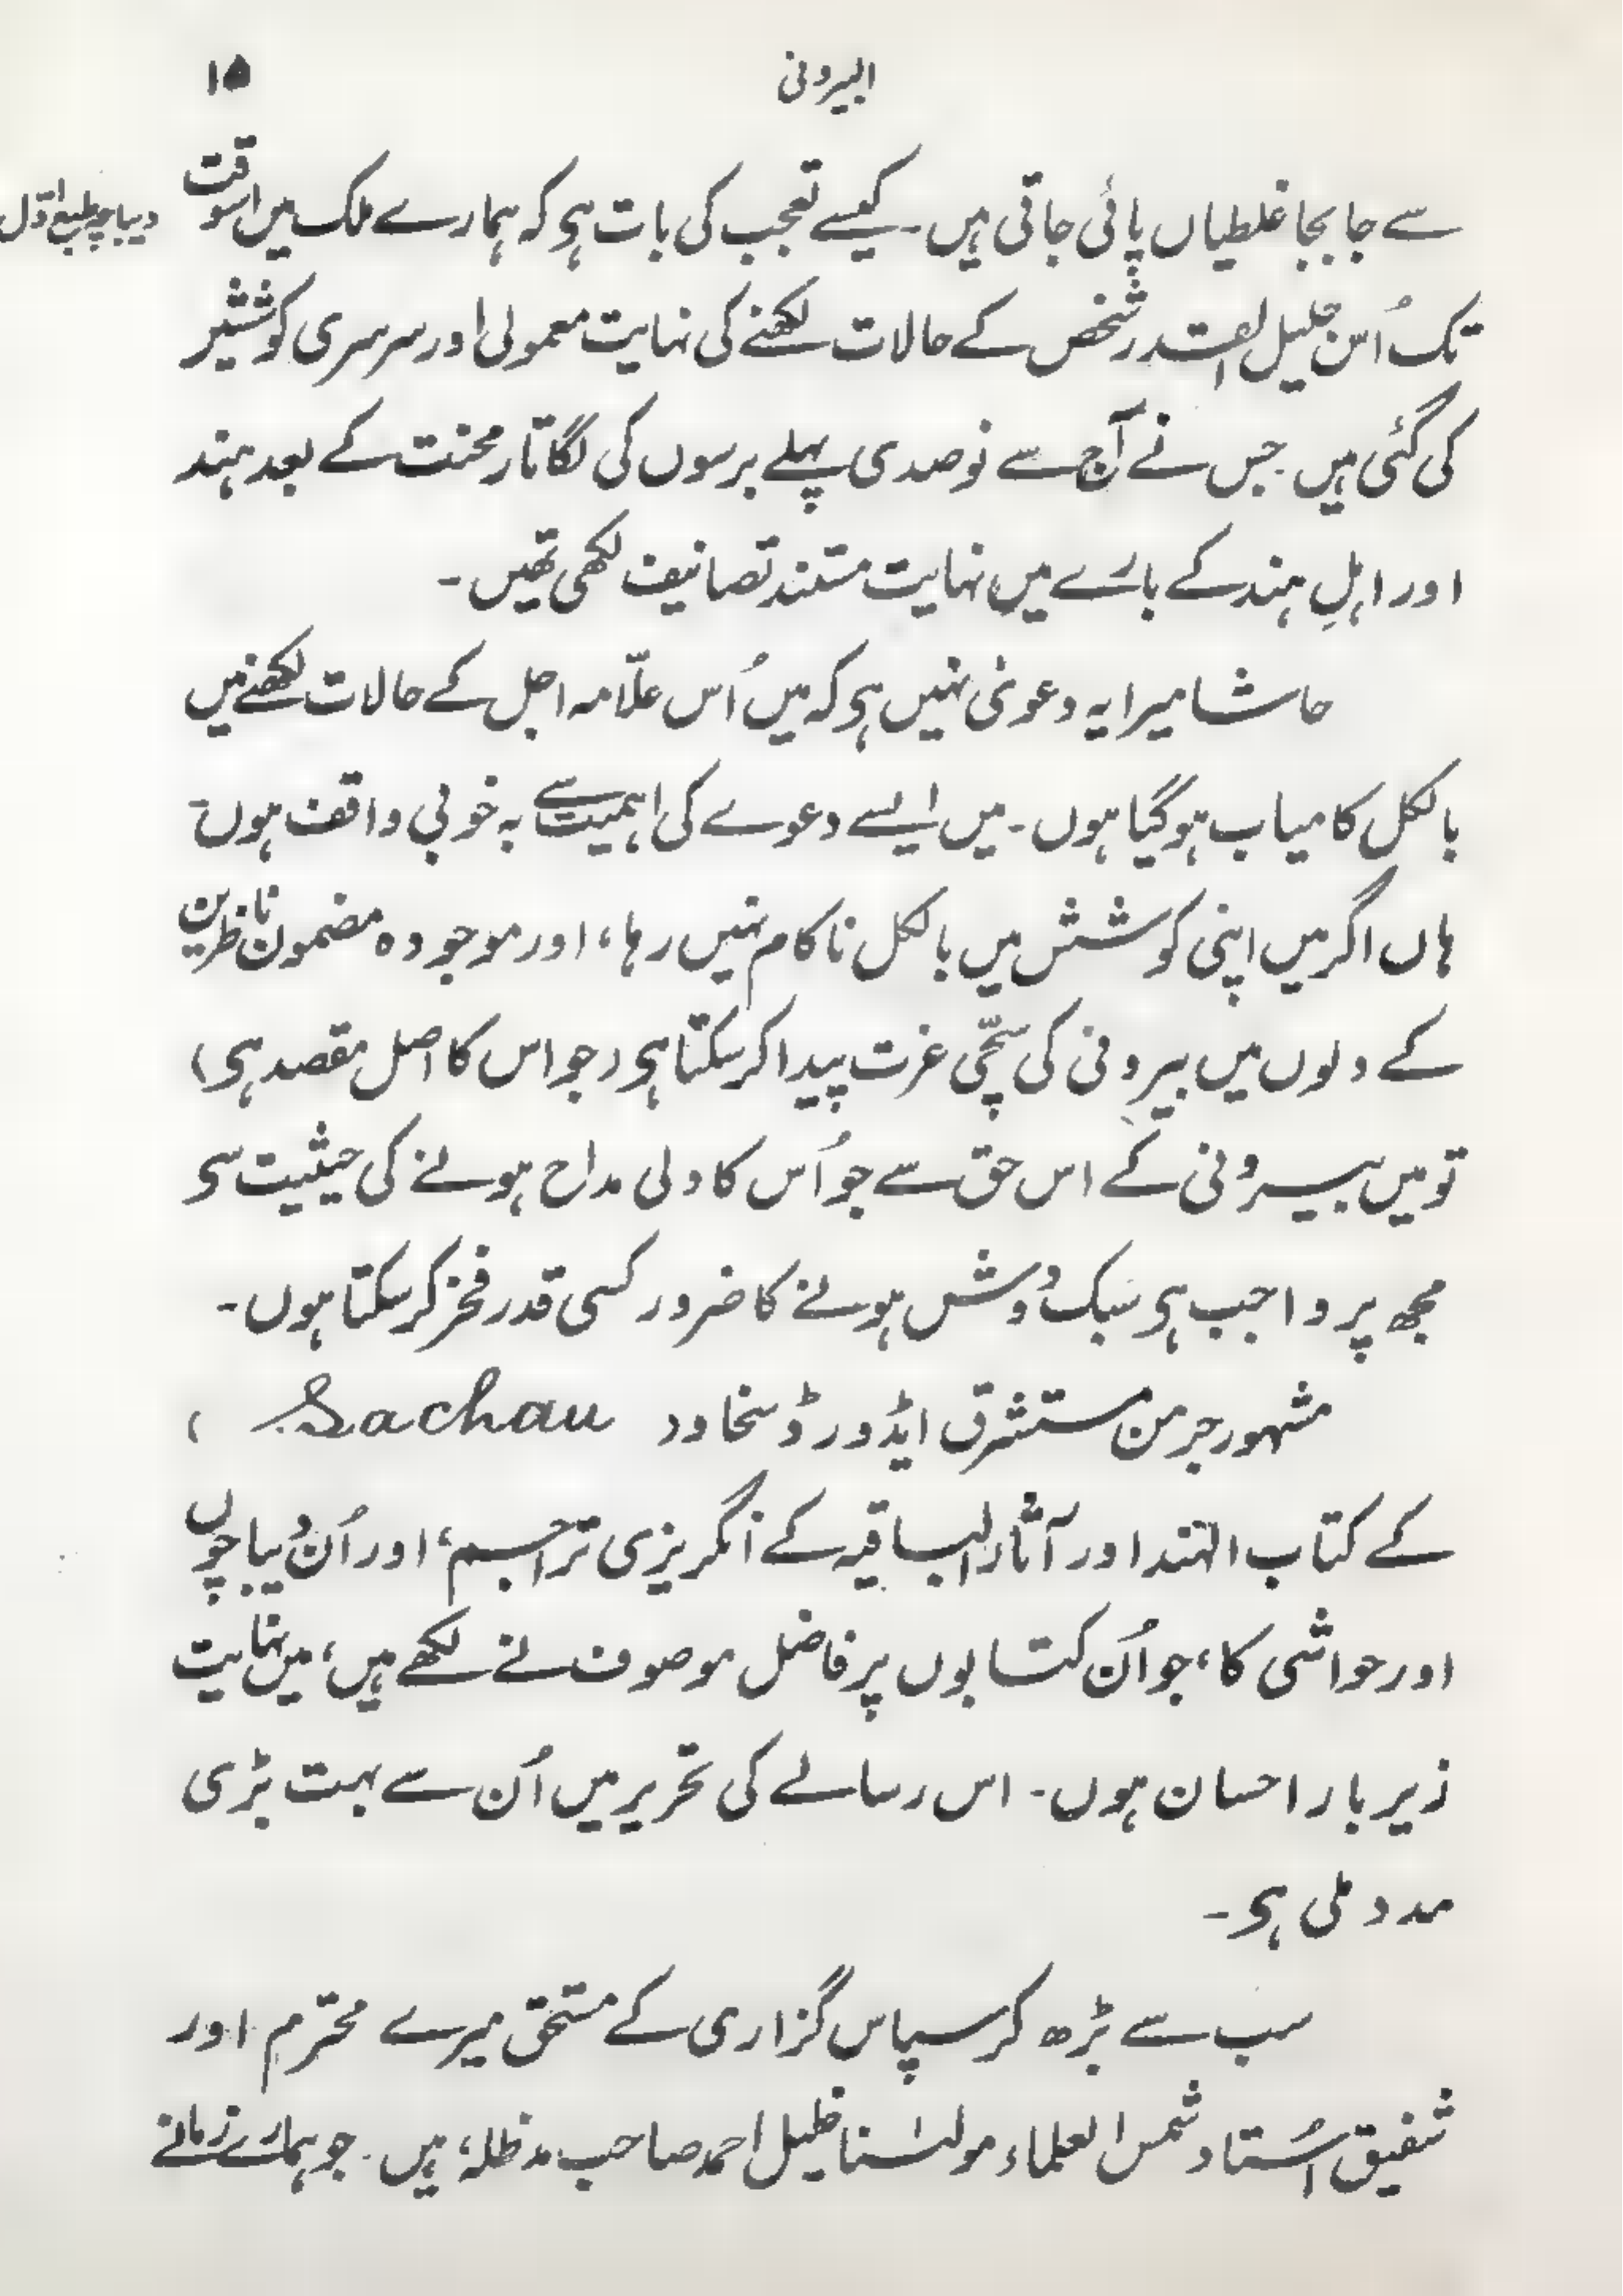 البیرونی ۱۵
سے جا بجا غلطیاں پائی جاتی ہیں۔ کیسے تعجب کی بات ہی کہ ہمارے ملک میں اسوقت
دیباچہ طبع اوّل
تک اُس جلیل القدر شخص کے حالات لکھنے کی نہایت معمولی اور سرسری کوششیں
کی گئی ہیں۔ جس نے آج سے نو صدی پہلے برسوں کی لگاتار محنت کے بعد ہند
اور اہلِ ہند کے بارے میں نہایت مستند تصانیف لکھی تھیں۔
حاشا میرا یہ دعویٰ نہیں ہی کہ میں اُس علّامہ اجل کے حالات لکھنے میں
بالکل کامیاب ہو گیا ہوں۔ میں ایسے دعوے کی اہمیت سے بہ خوبی واقف ہوں۔
ہاں اگر میں اپنی کوشش میں بالکل ناکام نہیں رہا، اور موجودہ مضمون ناظرین
کے دلوں میں بیرونی کی سچّی عزت پیدا کر سکتا ہی (جو اس کا اصل مقصد ہی)
تو میں بیرونی کے اس حق سے جو اُس کا دلی مداح ہونے کی حیثیت سی
مجھ پر واجب ہی سبک دُوش ہونے کا ضرور کسی قدر فخر کر سکتا ہوں۔
مشہور جرمن مستشرق ایڈورڈ سخاو (Sachau)
کے کتاب الہند اور آثار الباقیہ کے انگریزی تراجم، اور اُن دیباچوں
اور حواشی کا، جو اُن کتابوں پر فاضل موصوف نے لکھے ہیں، میں نہایت
زیر بار احسان ہوں۔ اس رسالے کی تحریر میں اُن سے بہت بڑی
مدد ملی ہی۔
سب سے بڑھ کر سپاس گزاری کے مستحق میرے محترم اور
شفیق اُستاد شمس العلماء مولٰنا خلیل احمد صاحب مدظلہٗ ہیں۔ جو ہمارے زمانے